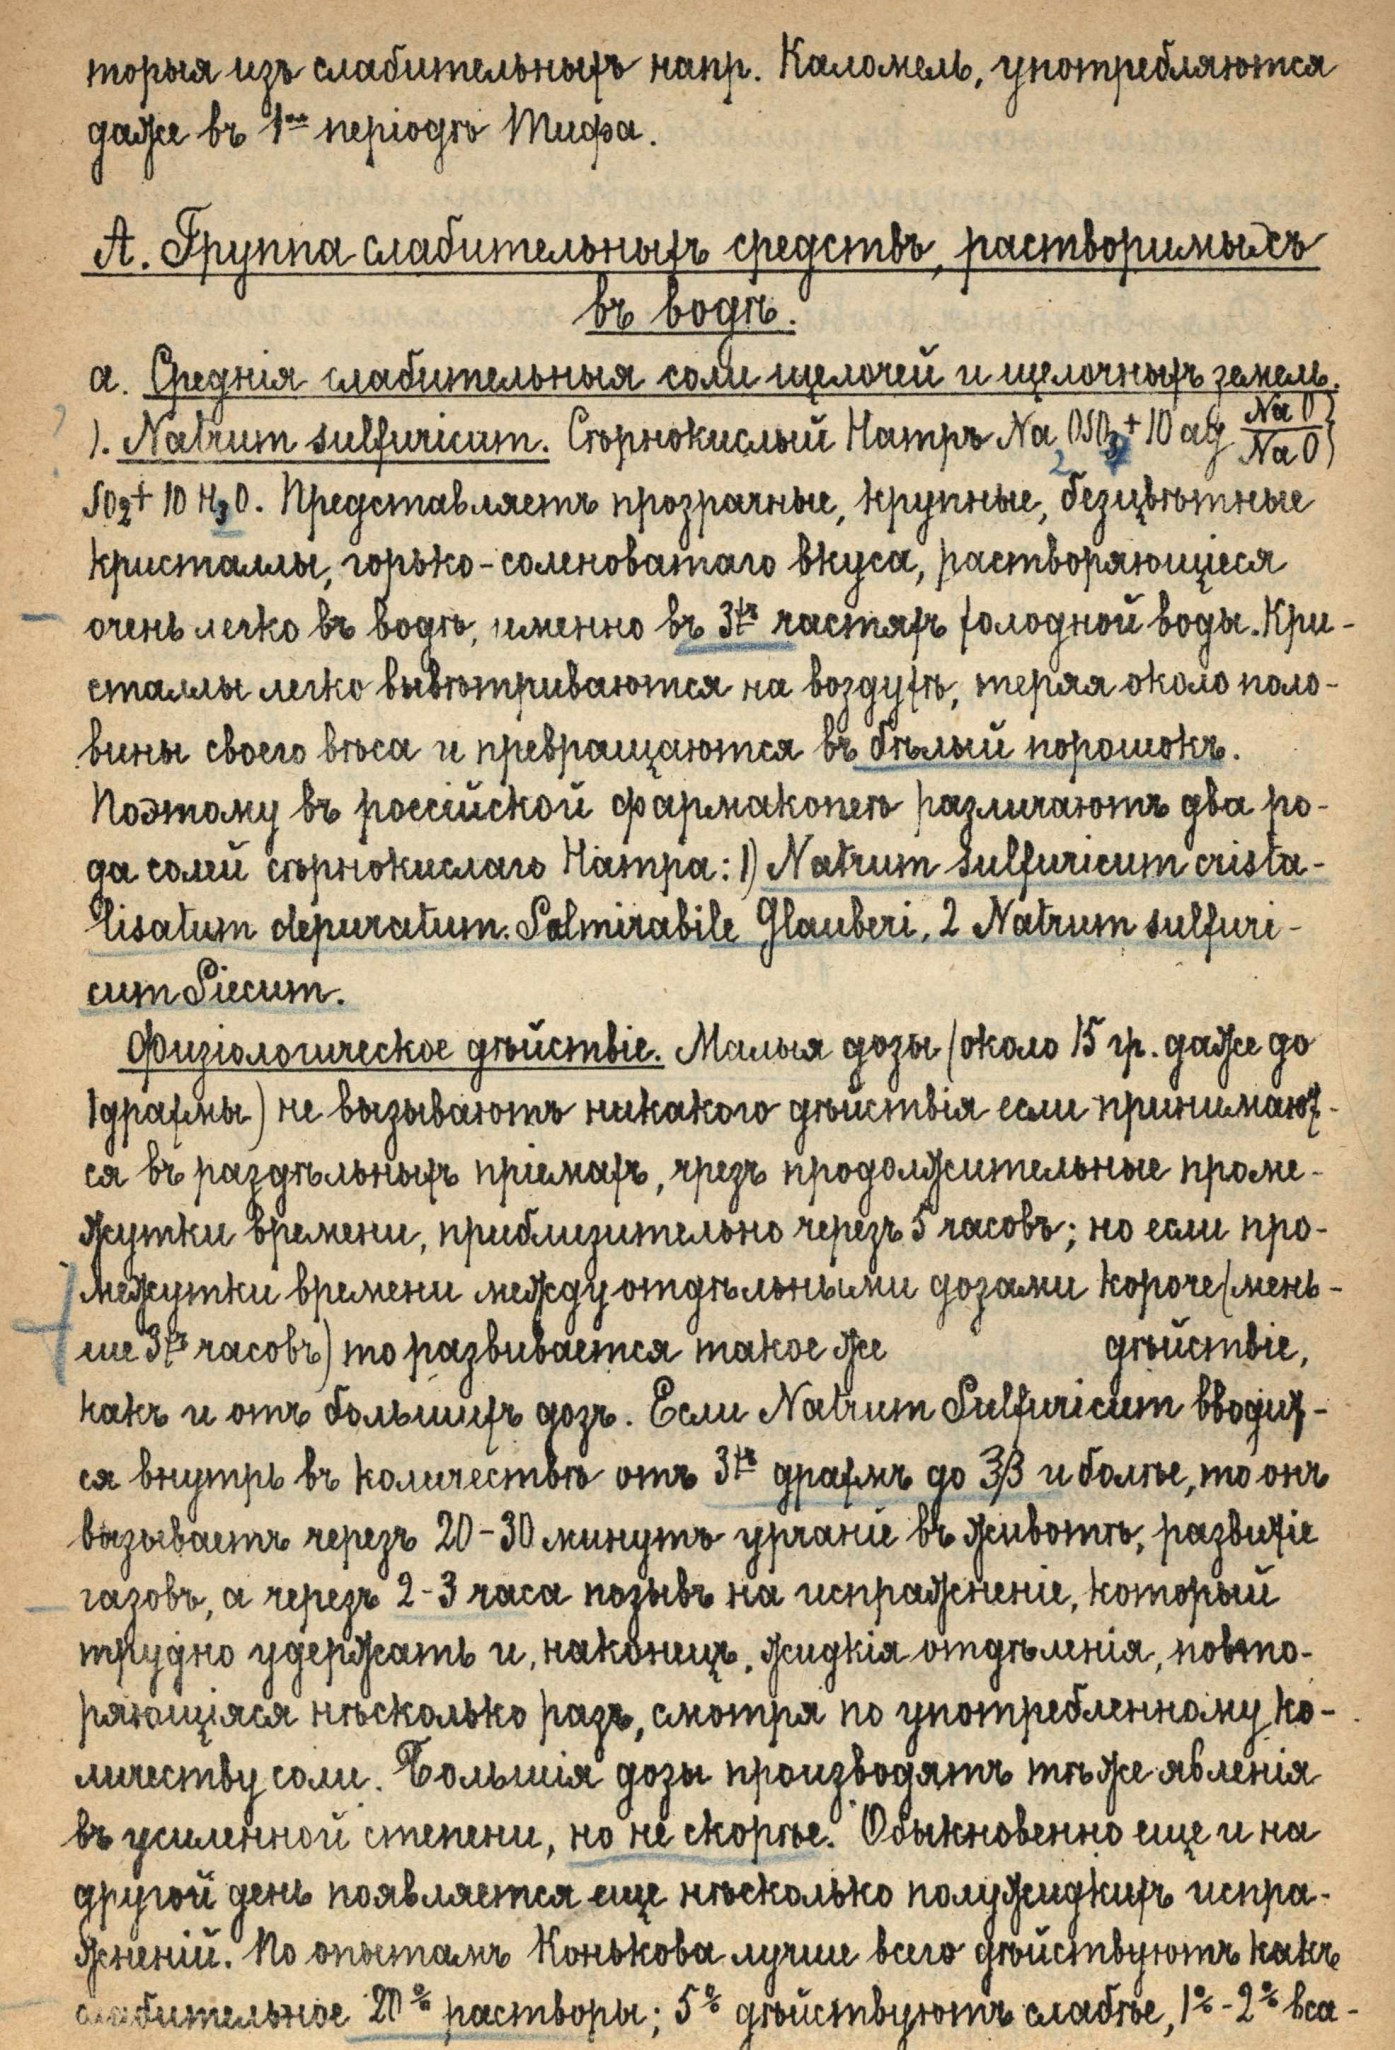 торыя изъ слабительныхъ напр. Каломель, употребляются
даже въ 1ᵐᵐ періодѣ Тифа.
А. Группа слабительныхъ средствъ, растворимыхъ
въ водѣ.
а. Среднія слабительныя соли щелочей и щелочныхъ земель.
1. Natrum sulfuricum. Сѣрнокислый Натръ Na₂OSO₃ + 10 aq NaO} NaO}
SO₂ + 10 H₃O. Представляетъ прозрачные, крупные, безцвѣтные
кристаллы, горько-соленоватаго вкуса, растворяющіеся
очень легко въ водѣ, именно въ 3хъ частяхъ холодной воды. Кри-
сталлы легко вывѣтриваются на воздухѣ, теряя около поло-
вины своего вѣса и превращаются въ бѣлый порошокъ.
Поэтому въ россійской фармакопеѣ различаютъ два ро-
да солей сѣрнокислаго Натра: 1) Natrum sulfuricum crista-
lisatum depuratum. Salmirabile Glauberi, 2 Natrum sulfuri-
cum Siecum.
Физіологическое дѣйствіе. Малыя дозы (около 15 гр. даже до
1 драхмы) не вызываютъ никакого дѣйствія если принимают-
ся въ раздѣльныхъ пріемахъ, чрезъ продолжительные проме-
жутки времени, приблизительно черезъ 5 часовъ; но если про-
межутки времени между отдѣльными дозами короче (мень-
ше 3хъ часовъ) то развивается такое же дѣйствіе,
какъ и отъ большихъ дозъ. Если Natrum Sulfuricum вводит-
ся внутрь въ количествѣ отъ 3хъ драхмъ до ℥β и болѣе, то онъ
вызываетъ черезъ 20-30 минутъ урчаніе въ животѣ, развитіе
газовъ, а черезъ 2-3 часа позывъ на испражненіе, который
трудно удержать и, наконецъ, жидкія отдѣленія, повто-
ряющіяся нѣсколько разъ, смотря по употребленному ко-
личеству соли. Большія дозы производятъ тѣ же явленія
въ усиленной степени, но не скорѣе. Обыкновенно еще и на
другой день появляется еще нѣсколько полужидкихъ испра-
жненій. По опытамъ Конькова лучше всего дѣйствуютъ какъ
слабительное 20% растворы; 5% дѣйствуютъ слабѣе, 1%-2% вса-